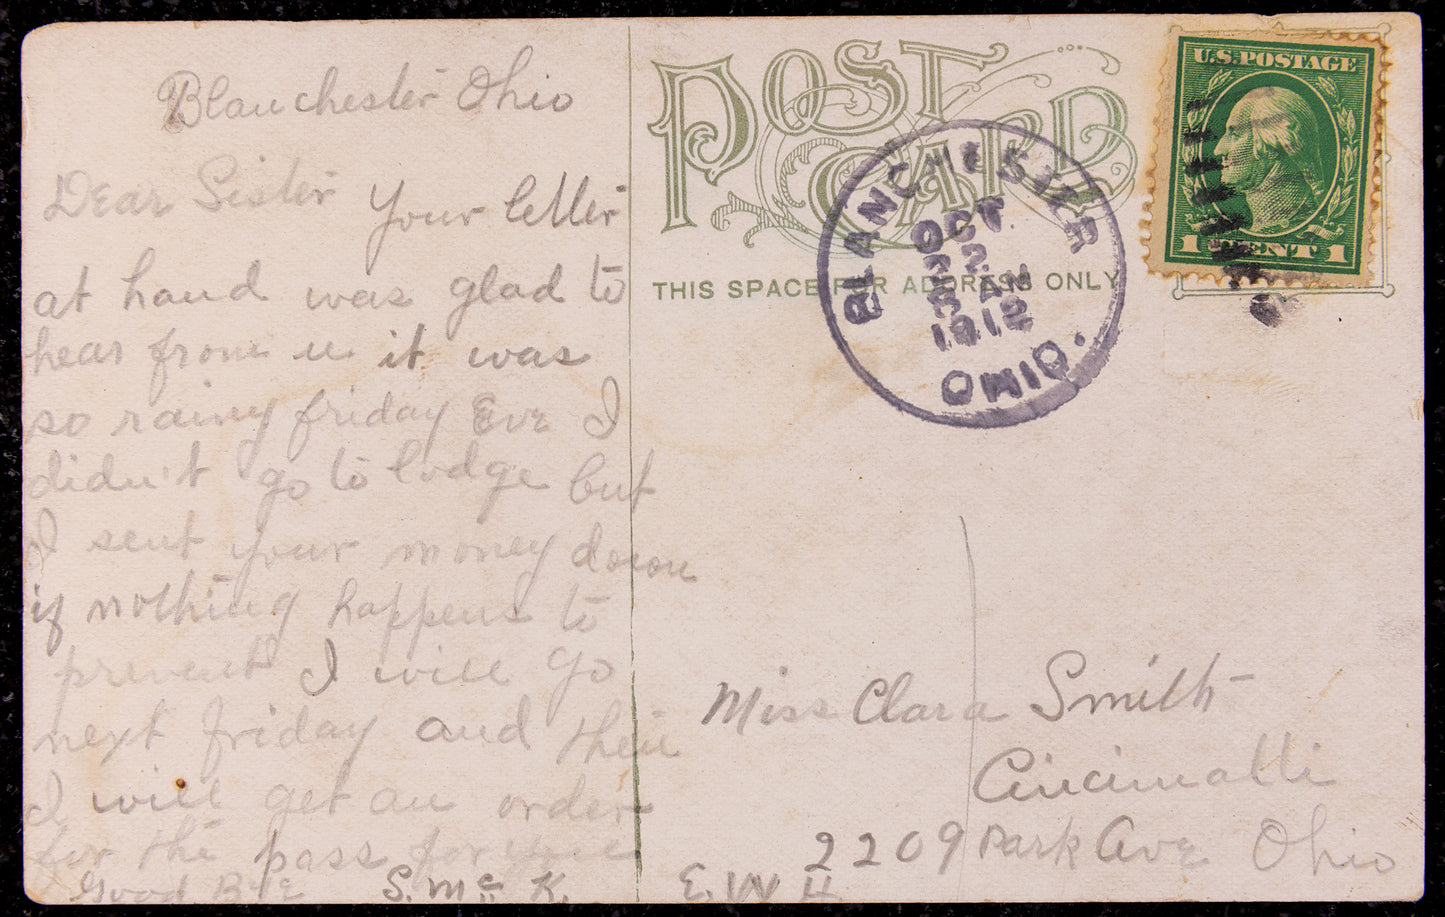 Blanchester Ohio
Dear Sister Your letter
at hand was glad to
hear from u it was
so rainy friday Eve I
didn't go to lodge but
I sent your money down
if nothing happens to
prevent I will go
next friday and then
I will get an order
for the pass for you
Good Bye S. Mc K. E. W H
POST
CARD
THIS SPACE FOR ADDRESS ONLY
BLANCHESTER
OCT
2
AM
1912
OHIO.
U.S. POSTAGE
1 CENT 1
Miss Clara Smith
Cincinnatti
2209 Park Ave Ohio